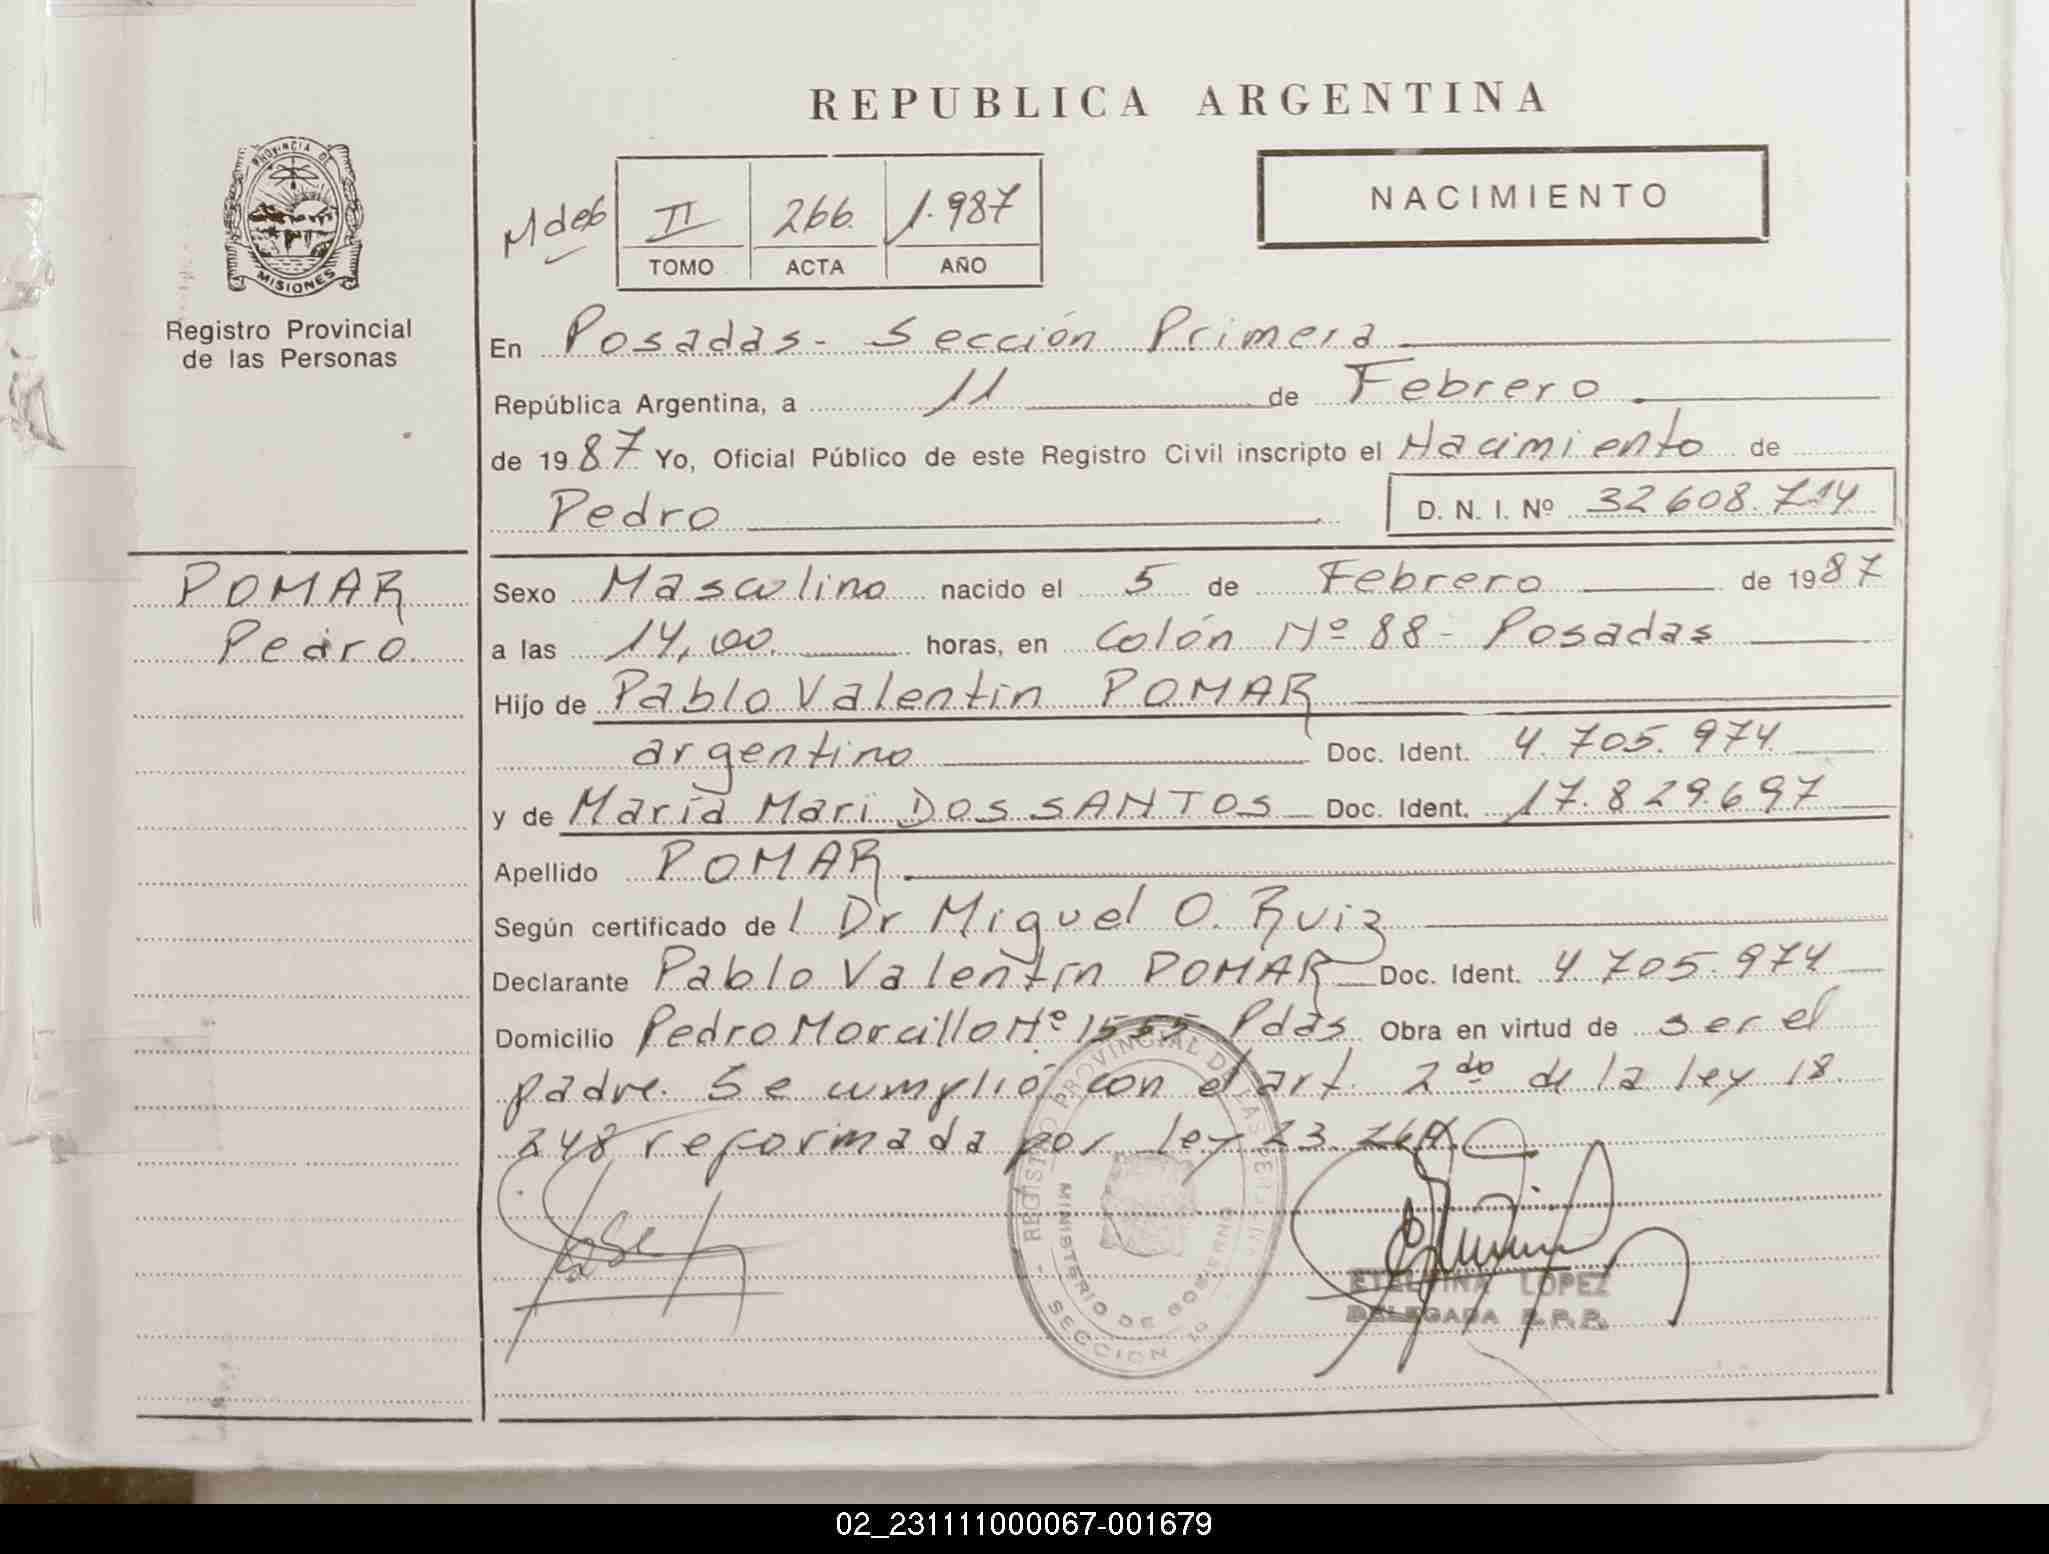 REPUBLICA ARGENTINA
NACIMIENTO
PROVINCIA DE
MISIONES
Registro Provincial
de las Personas
M deb II 266. 1.987
TOMO ACTA AÑO
En Posadas - Sección Primera
República Argentina, a 11 de Febrero
de 1987 Yo, Oficial Público de este Registro Civil inscripto el Nacimiento de
Pedro D. N. I. Nº 32608.714
POMAR
Pedro
Sexo Masculino nacido el 5 de Febrero de 1987
a las 14,00 horas, en Colón Nº 88 - Posadas
Hijo de Pablo Valentin POMAR
argentino Doc. Ident. 4.705.974
y de María Mari DOS SANTOS Doc. Ident. 17.829.697
Apellido POMAR
Según certificado de l Dr Miguel O. Ruiz
Declarante Pablo Valentín POMAR Doc. Ident. 4.705.974
Domicilio Pedro Morcillo Nº 1555 Pdas Obra en virtud de ser el
padre. Se cumplió con el art. 2do de la ley 18.
248 reformada por ley 23.264.
REGISTRO PROVINCIAL DE LAS PERSONAS
MINISTERIO DE GOBIERNO
SECCION 1ª
ETELVINA LOPEZ
DELEGADA R.P.P.
02_231111000067-001679